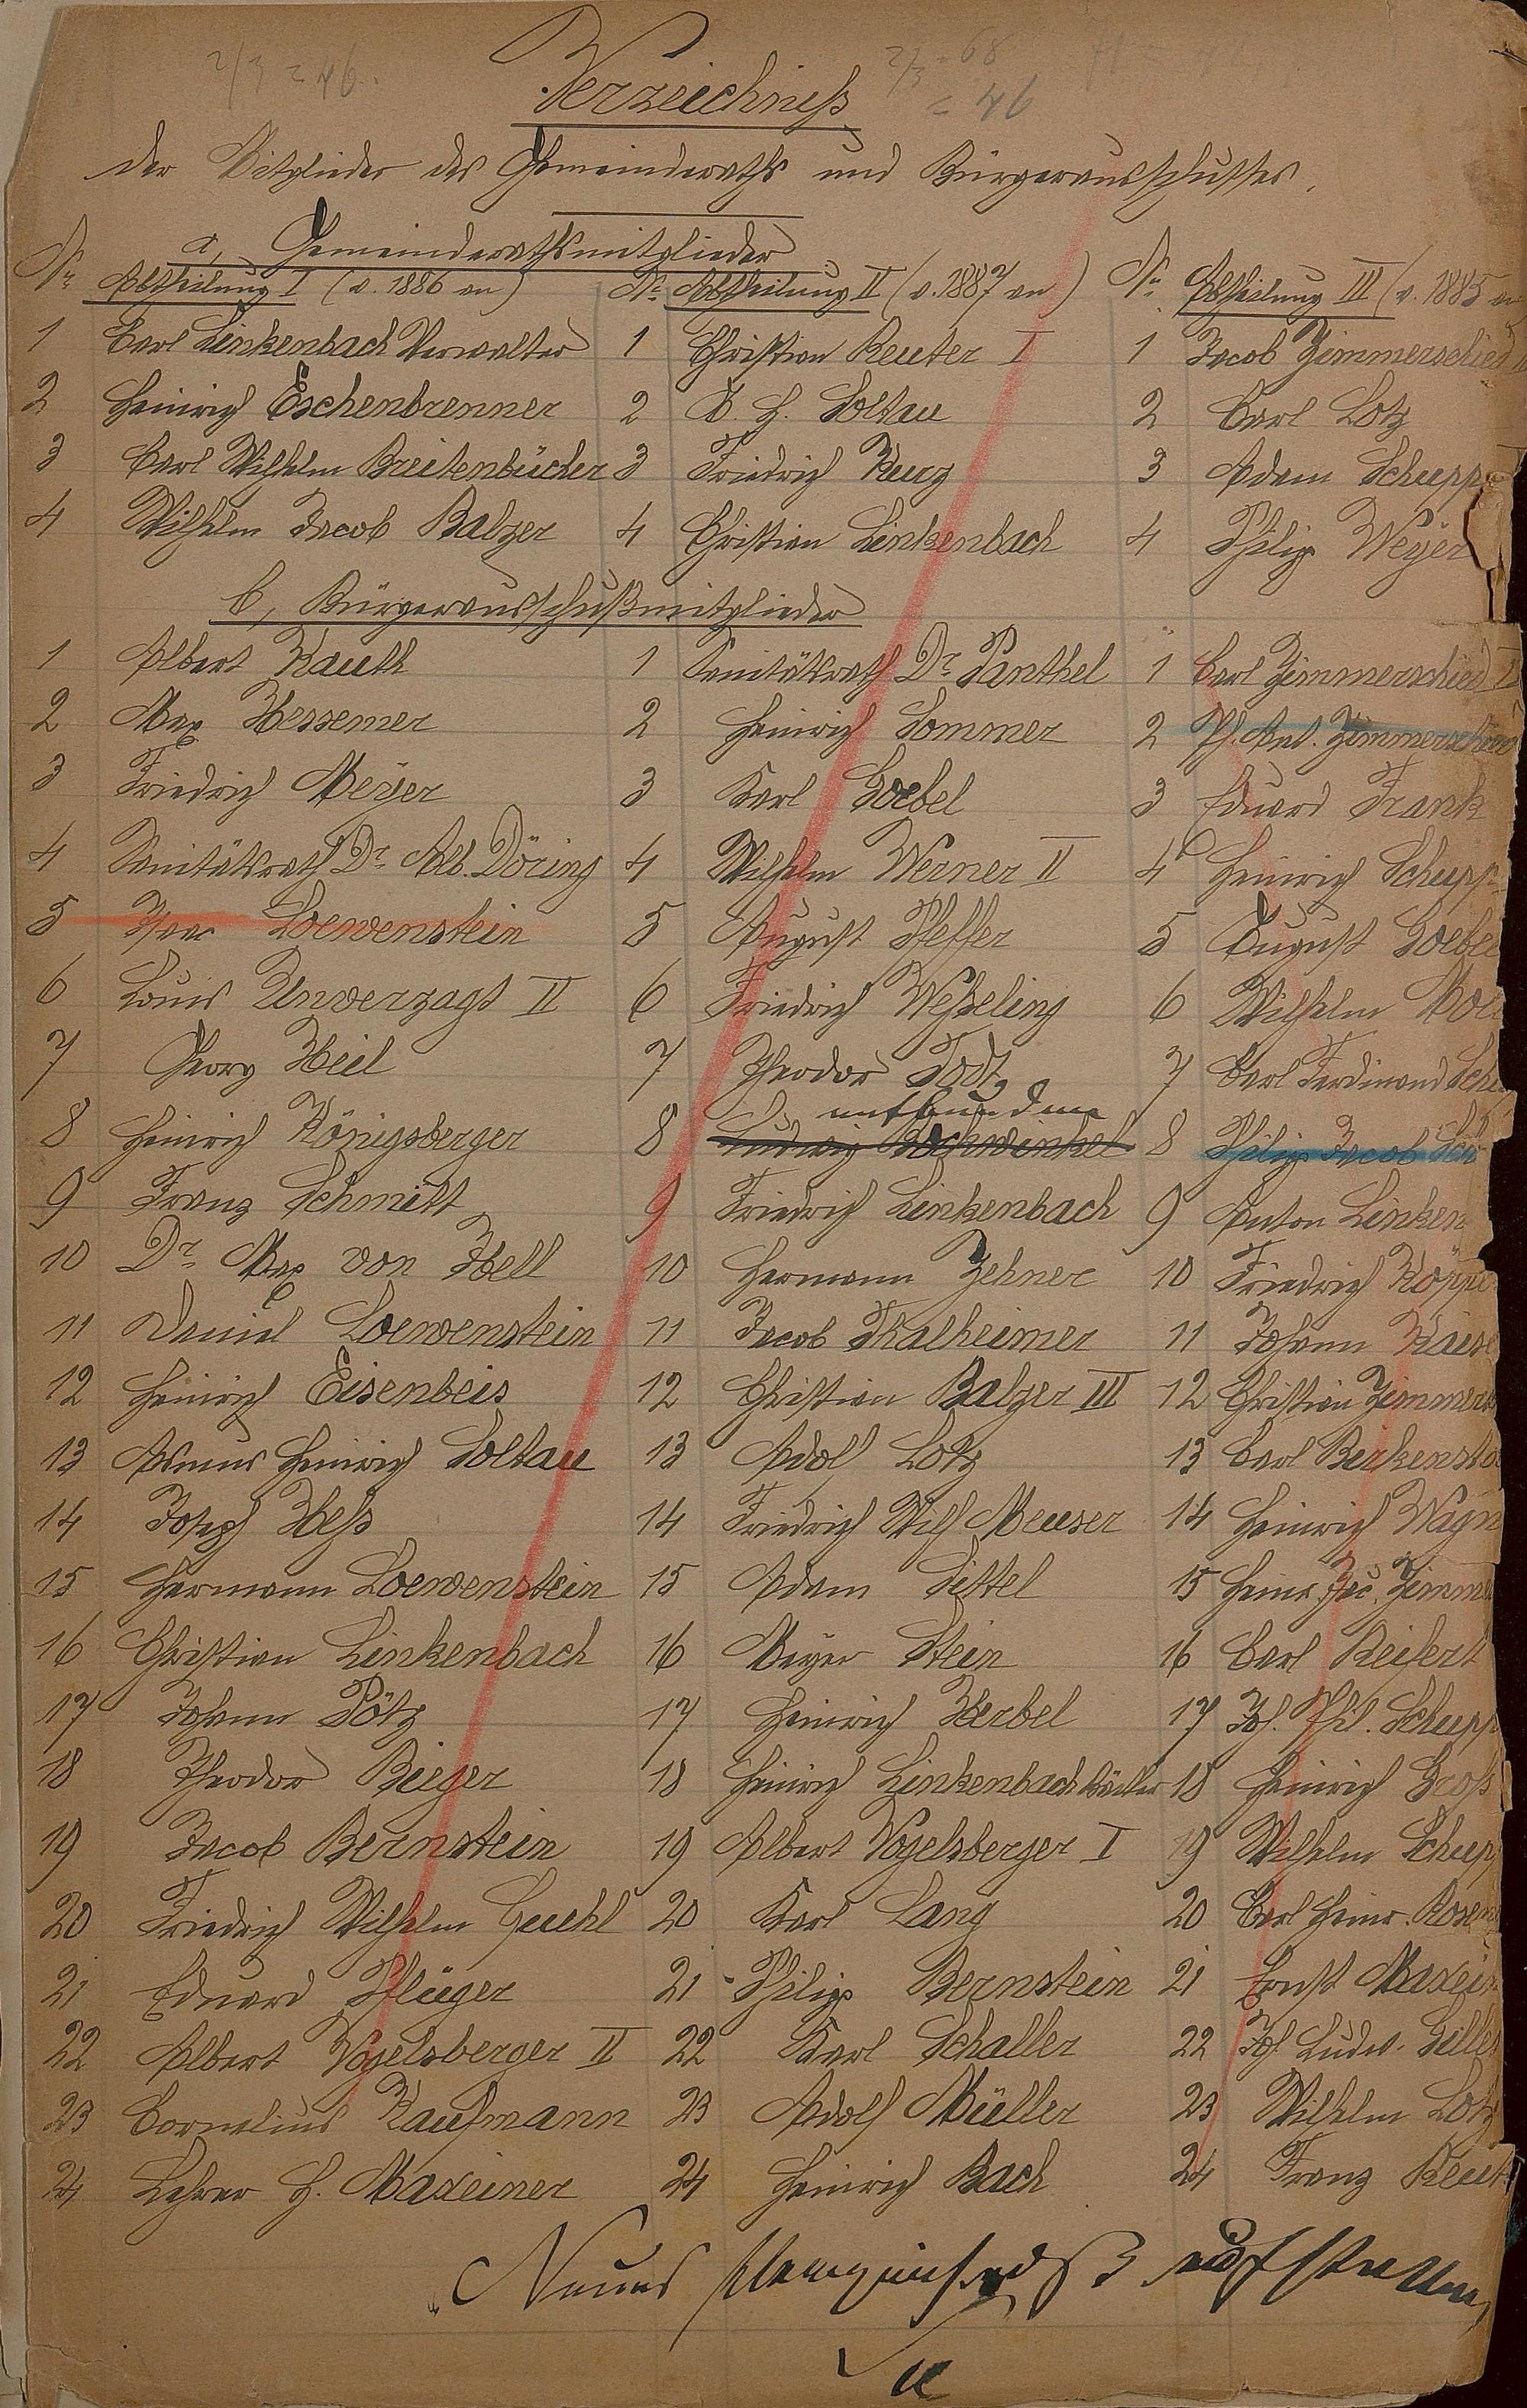 2/3 = 46.
2/3 68
= 46
Verzeichneß
der Mitglieder des Gemeinderaths und Bürgerausschusses.
a, Gemeinderathsmitglieder
No Abtheilung I (v. 1886 an) No Abtheilung II (v. 1887 an) No Abtheilung III (v. 1885 an
1 Carl Linkenbach Verwalter 1 Christian Reuter I 1 Jacob Zimmerschied
2 Heinrich Eschenbrenner 2 A H. Soltau 2 Carl Lotz
3 Carl Wilhelm Breitenbücher 3 Friedrich Kurz 3 Adam Schupp
4 Wilhelm Jacob Balzer 4 Christian Linkenbach 4 Philipp Weyer
b, Bürgerausschußmitglieder
1 Albert Kauth 1 Sanitätsrath Dr Panthel 1 Carl Zimmerschied
2 Max Hessemer 2 Heinrich Sommer 2 Ph. Ant. Zimmerschied
3 Friedrich Meyer 3 Karl Goebel 3 Eduard Frank
4 Sanitätsrath Dr Alb. Döring 4 Wilhelm Werner II 4 Heinrich Schupp
5 Isaac Loewenstein 5 August Pfeffer 5 August Goebel
6 Louis Unverzagt II 6 Friedrich Weßeling 6 Wilhelm
7 Georg Heil 7 Theodor Todt 7 Carl Ferdinand
8 Heinrich Königsberger 8 Ludwig Bockwinkel 8 Philipp Jacob
9 Franz Schmitt 9 Friedrich Linkenbach 9 Anton Linken
10 Dr Max von Ibell 10 Hermann Zehner 10 Friedrich Köpp
11 Daniel Loewenstein 11 Jacob Thalheimer 11 Johann Kaise
12 Heinrich Eisenbeis 12 Christian Balzer III 12 Christian Zimmers
13 Asmus Heinrich Soltau 13 Adolf Lotz 13 Carl Birkensto
14 Joseph Heß 14 Friedrich Wilh Meuser 14 Heinrich Wagn
15 Hermann Loewenstein 15 Adam Dittel 15 Heinr. Jac. Zimme
16 Christian Linkenbach 16 Meyer Stein 16 Carl Reifert
17 Johann Pötz 17 Heinrich Herbel 17 Joh. Phil. Schupp
18 Theodor Rieger 18 Heinrich Linkenbach 18 Heinrich Groß
19 Jacob Bernstein 19 Albert Vogelsberger I 19 Wilhelm Schup
20 Friedrich Wilhelm Guckl 20 Karl Lang 20 Carl Heinr. Rosen
21 Eduard Pflüger 21 Philipp Bernstein 21 Ernst Maxein
22 Albert Vogelsberger II 22 Karl Schaller 22 Joh Ludw. Gilles
23 Cornelius Kaufmann 23 Adolf Müller 23 Wilhelm Lotz
24 Lehrer H. Maxeiner 24 Heinrich Bach 24 Franz Reut
Neues aufstellen